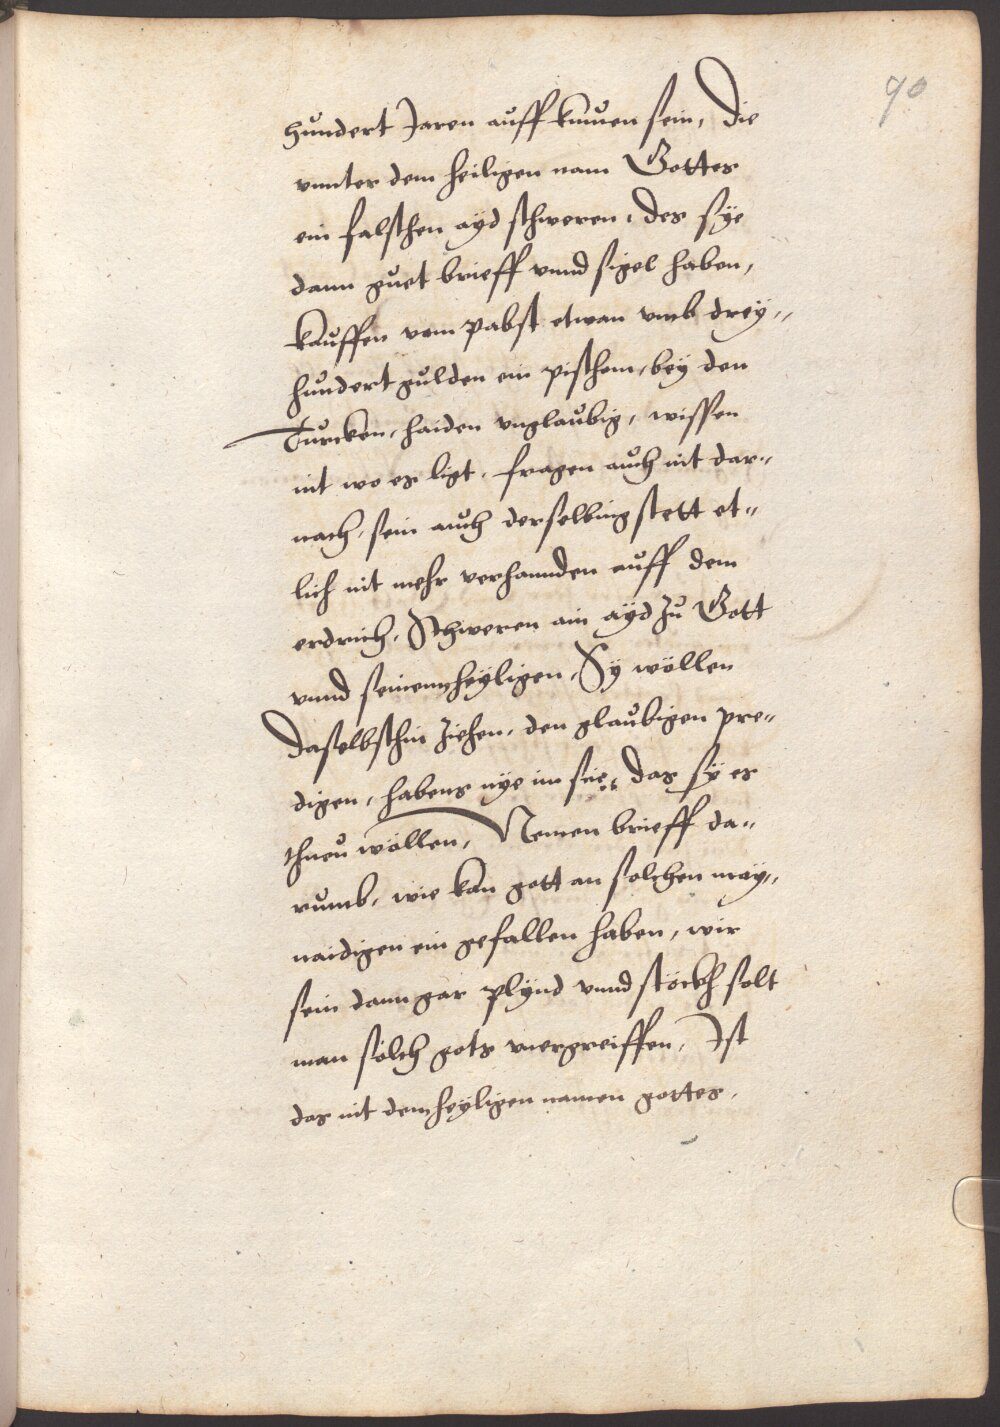 90
hundert Jaren auff kumen sein, Die
vnnter dem heiligen nam Gottes
ein falschen ayd schweren, des sye
dann guet brieff vnnd sigel haben,
kauffen vom Pabst etwan vmb drey„
hundert gulden ein pisthom, bey den
Turcken, haiden vnglaubig, wissen
nit wo es ligt, fragen auch nit dar„
nach, sein auch derselbing stett et„
lich nit mehr verhannden auff dem
erdrich, Schweren ain ayd zu Gott
vnnd seinenn heyligen, Sy wöllen
daselbsthin ziehen, den glaubigen pre„
digen, habens nye im sie, das sy es
thuen wöllen, Nemen brieff da„
rumb, wie kan gott an solchen may„
naidigen ein gefallen haben, wir
sein dann gar plynd vnnd stöckh solt
man solch gots nit ergreiffen, Ist
das nit dem heyligen namen gottes,